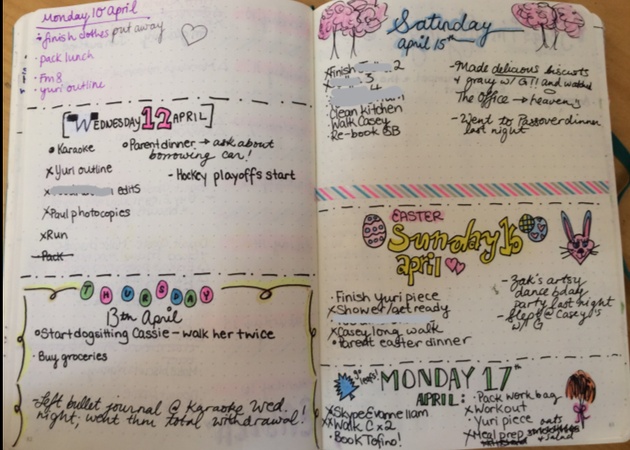 Monday 10 April
finish clothes put away
pack lunch
Fm8
yuri outline
WEDNESDAY 12 APRIL
Karaoke
xYuri outline
x edits
xPaul photocopies
xRun
Pack
Parent dinner → ask about
borrowing car!
- Hockey playoffs start
THURSDAY
13th April
Start dogsitting Cassie - walk her twice
Buy groceries
Left bullet journal @ Karaoke Wed.
night, went thru total withdrawal!
Saturday
april 15th
xFinish 2
3
4
Clean kitchen
Walk Casey
Re-book GB
- Made delicious biscuits
+ gravy w/ G!! and watched
The Office → heaven
- Went to Passover dinner
last night
EASTER
Sunday 16
april
Finish Yuri piece
xShower/get ready
xCasey long walk
Parent easter dinner
- Zak's artsy
dance bday
party last night
- Slept @ Casey's
w/ G
go leafs!
MONDAY 17th
APRIL:
xSkype Evanne 11am
xWalk C x2
Book Tofino!
Pack work bag
xWorkout
Yuri piece
xMeal prep oats
+ salad